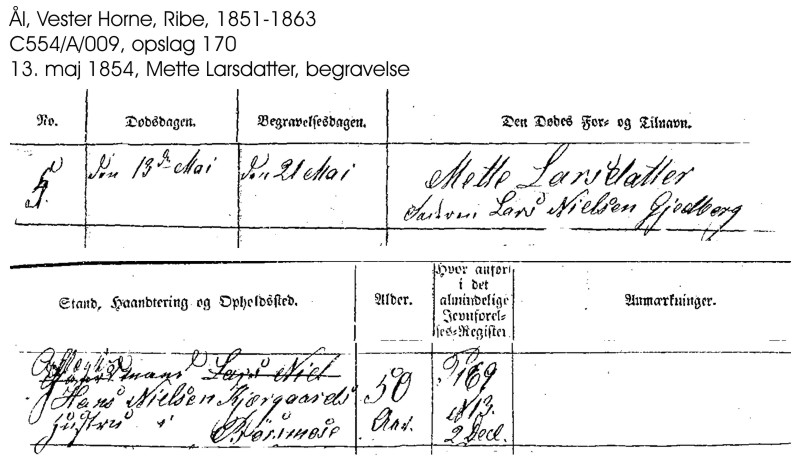 Ål, Vester Horne, Ribe, 1851-1863
C554/A/009, opslag 170
13. maj 1854, Mette Larsdatter, begravelse
No.
Dødsdagen.
Begravelsesdagen.
Den Dødes For- og Tilnavn.
5
den 13de Mai
den 21 Mai
Mette Larsdatter
Lars Nielsen Gjedberg
Stand, Haandtering og Opholdssted.
Alder.
Hvor anført
i det
almindelige
Jevnførel-
ses-Register
Anmærkninger.
Gaardmand Lars Niel
Hans Nielsen Kjærgaards
Hustru i
50
Aar.
169
N 13.
2 Decl.